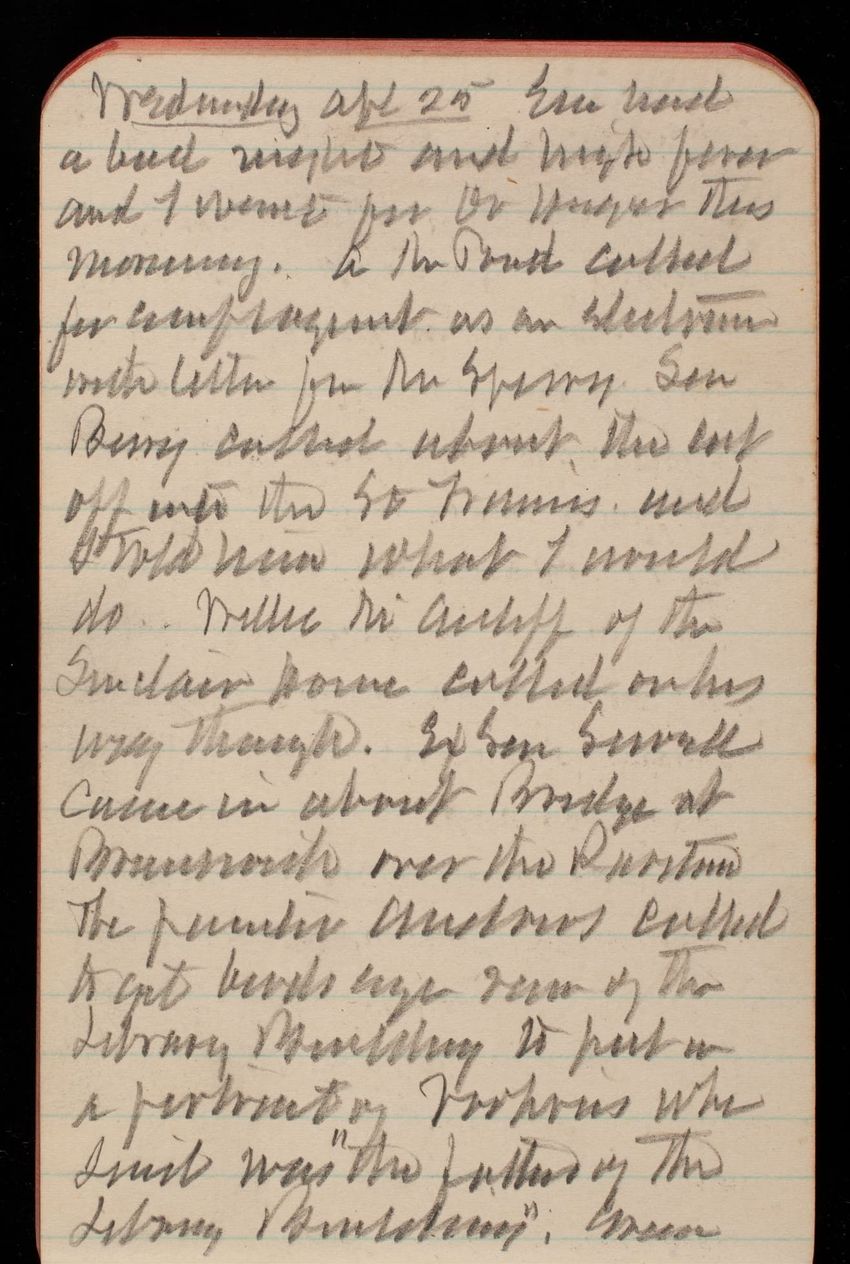 Wednesday Apl 25 Em had
a bad night and high fever
and I went for Dr this
morning. A Mr Bond called
for employment as an electrician
with letter from Mr Sperry. Gen
Berry called about the cut
off into the St Francis and
I told him what I would
do. Willie of the
Sinclair Home called on his
way through. Ex Sen Sewell
came in about Bridge at
Brunswick over the Raritan
The painter Andrews called
to get birds eye view of the
Library Building to put in
a portrait of Voorhees who
said was "the father of the
Library Building". Green